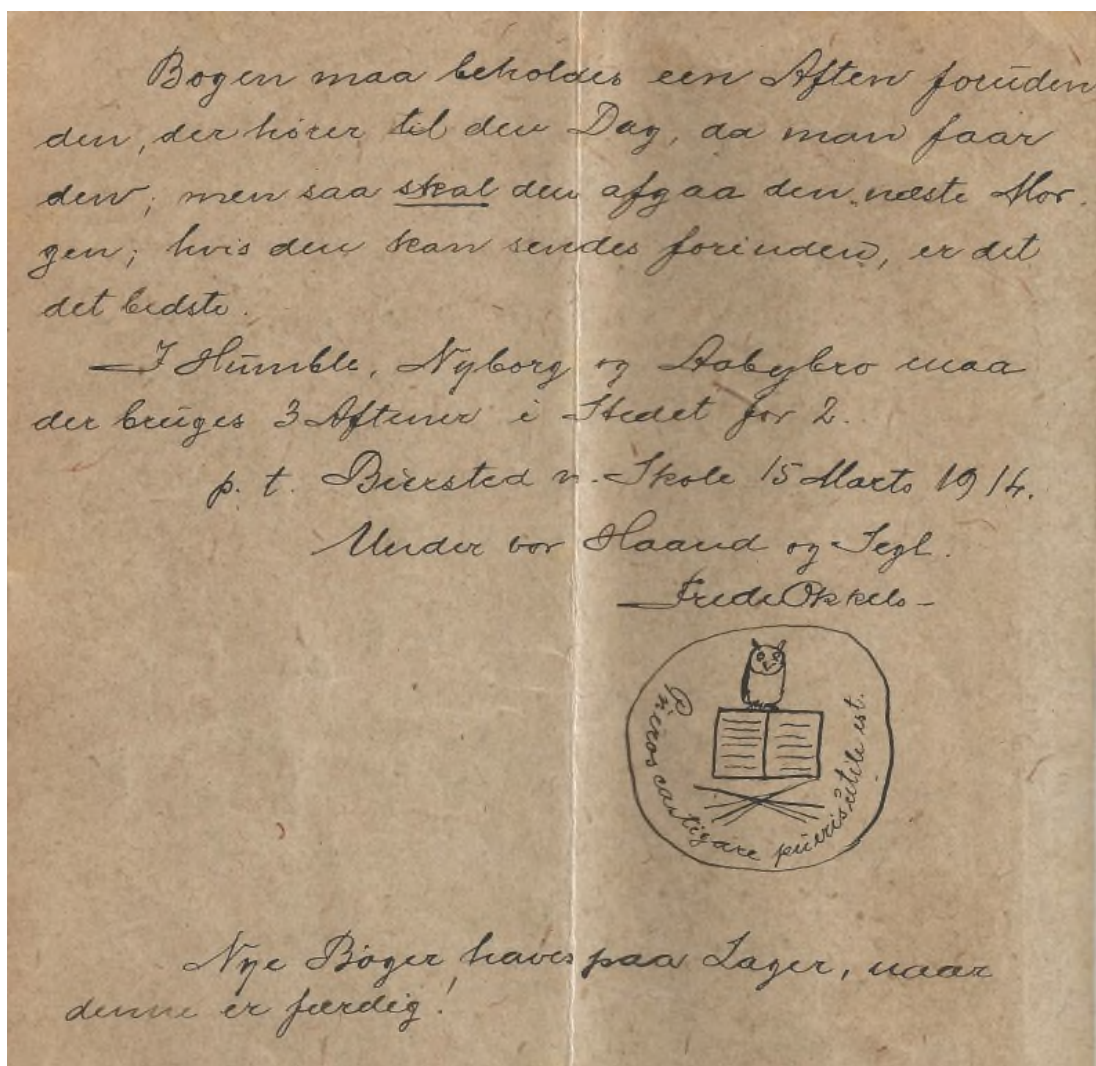 Bogen maa beholdes een Aften foruden
den, der hører til den Dag, da man faar
den; men saa skal den afgaa den næste Mor-
gen; hvis den kan sendes forinden, er det
det bedste.
I Humble, Nyborg og Aabybro maa
der bruges 3 Aftener i Stedet for 2.
p. t. Biersted n. Skole 15 Marts 1914.
Under vor Haand og Segl.
Frede Okkels
Pueros castigare pueris utile est.
Nye Bøger haves paa Lager, naar
denne er færdig!